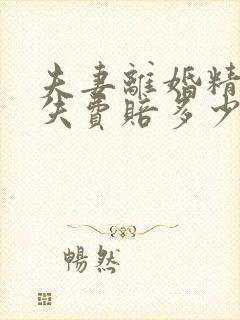 夫妻離婚精
失費賠多少
暢然